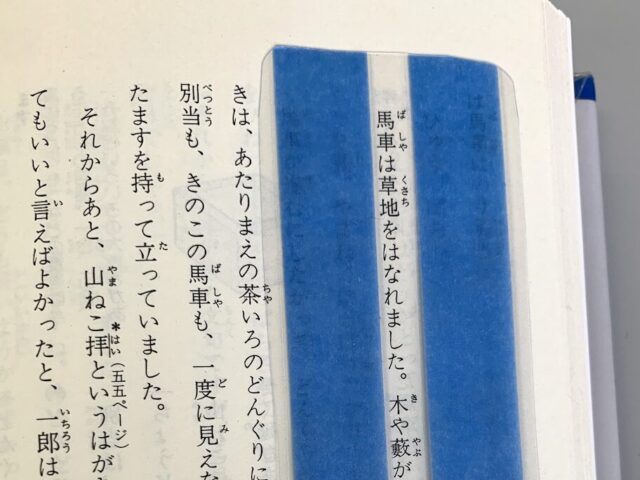 馬車は草地をはなれました。木や藪が
きは、あたりまえの茶いろのどんぐりに
別当も、きのこの馬車も、一度に見えな
たますを持って立っていました。
それからあと、山ねこ拝というはが
てもいいと言えばよかったと、一郎は